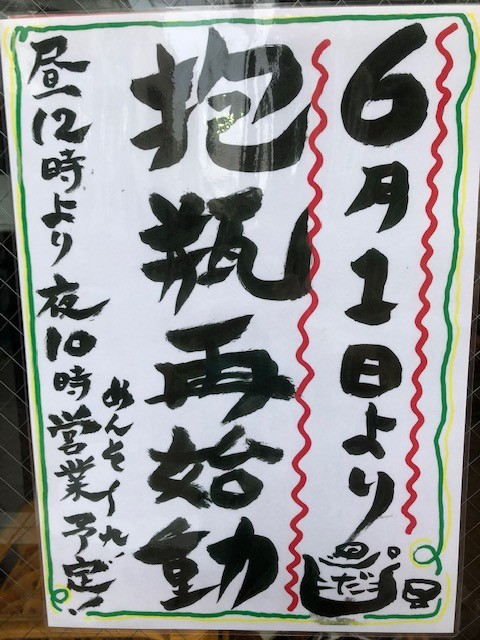 6月1日より
抱瓶再始動
めんそーれ
昼12時より 夜10時営業予定!